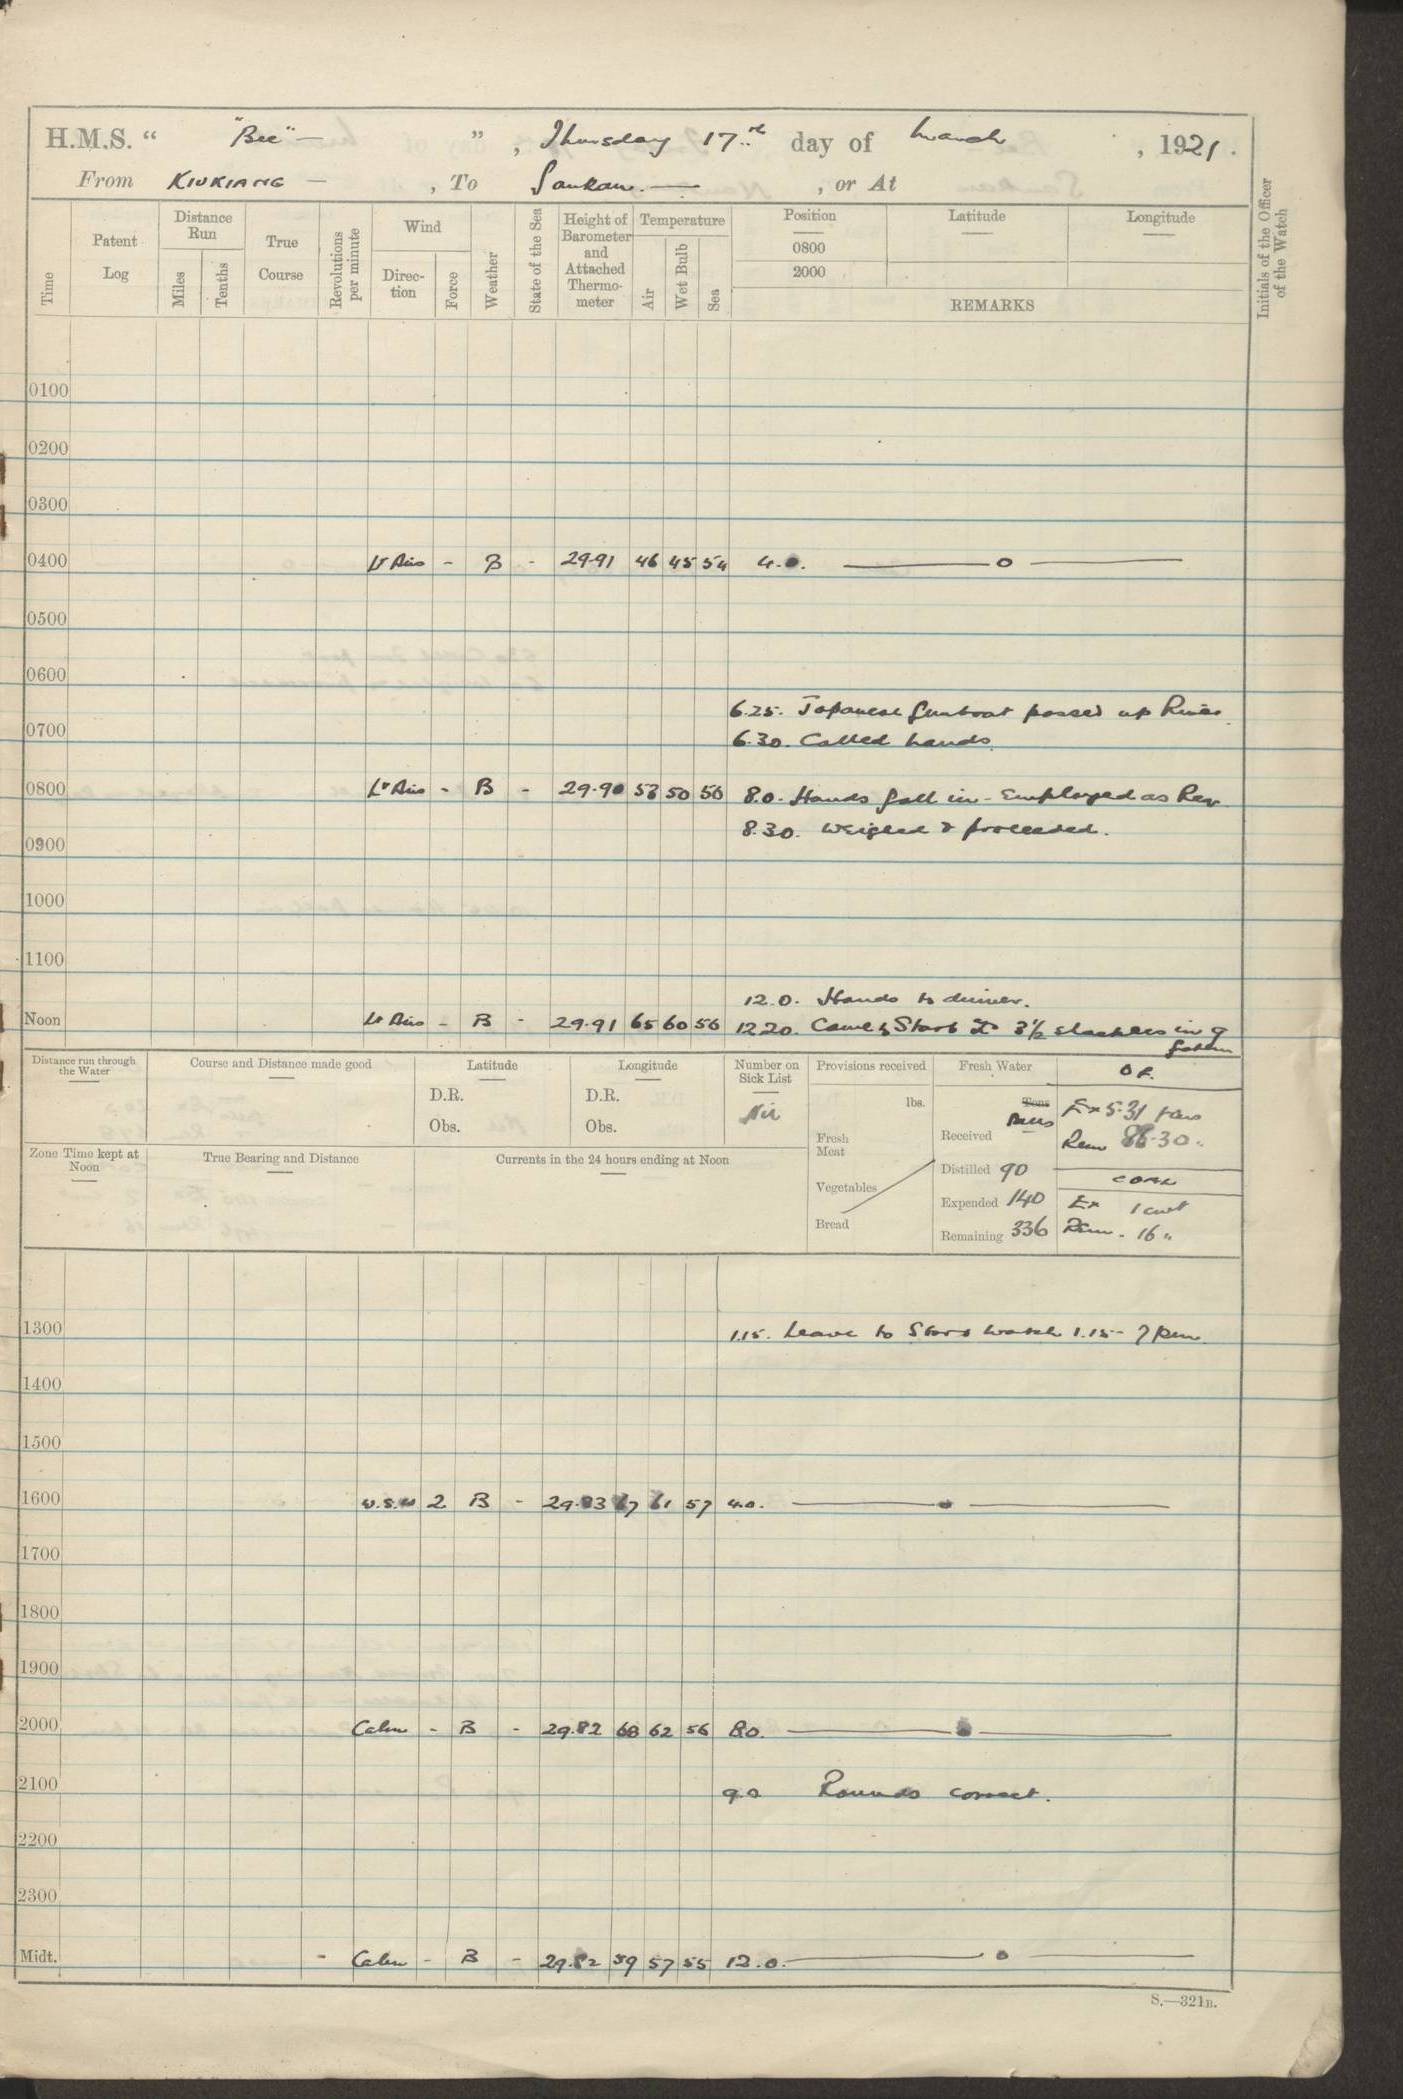 H.M.S. " "Bee" — ", Thursday 17th day of March, 1921.
From KIUKIANG — , To — , or At
Time
Patent Log
Distance Run
Miles
Tenths
True Course
Revolutions per minute
Wind
Direc-tion
Force
Weather
State of the Sea
Height of Barometer and Attached Thermo-meter
Temperature
Air
Wet Bulb
Sea
Position
0800
2000
Latitude
Longitude
REMARKS
Initials of the Officer of the Watch
0100
0200
0300
0400 Lt Airs - B - 29.91 46 45 54 4.0. —— o ——
0500
0600
6.25. Japanese Gunboat passed up River
0700
6.30. Called hands.
0800 Lt Airs - B - 29.90 53 50 56 8.0. Hands fall in - Employed as Req
8.30. Weighed & proceeded.
0900
1000
1100
12.0. Hands to dinner.
Noon Lt Airs - B - 29.91 65 60 56 12.20. Came to Starb 3½ shackles in 9
fathom
Distance run through the Water
Course and Distance made good
Latitude
D.R.
Obs.
Longitude
D.R.
Obs.
Number on Sick List
Nil
Zone Time kept at Noon
True Bearing and Distance
Currents in the 24 hours ending at Noon
Provisions received
lbs.
Fresh Meat
Vegetables
Bread
Fresh Water
Tons
Received
Distilled 90
Expended 140
Remaining 336
Ex 5.31 tons
Rem 86.30 "
COAL
Ex 1 cwt
Rem. 16 "
1300 1.15. Leave to Starb watch 1.15 - 7 pm.
1400
1500
1600 W.S.W 2 B - 29.83 67 61 57 4.0. —— o ——
1700
1800
1900
2000 Calm - B - 29.82 68 62 56 8.0. —— o ——
2100 9.0 Rounds correct.
2200
2300
Midt. - Calm - B - 29.82 59 57 55 12.0. —— o ——
S.—321B.